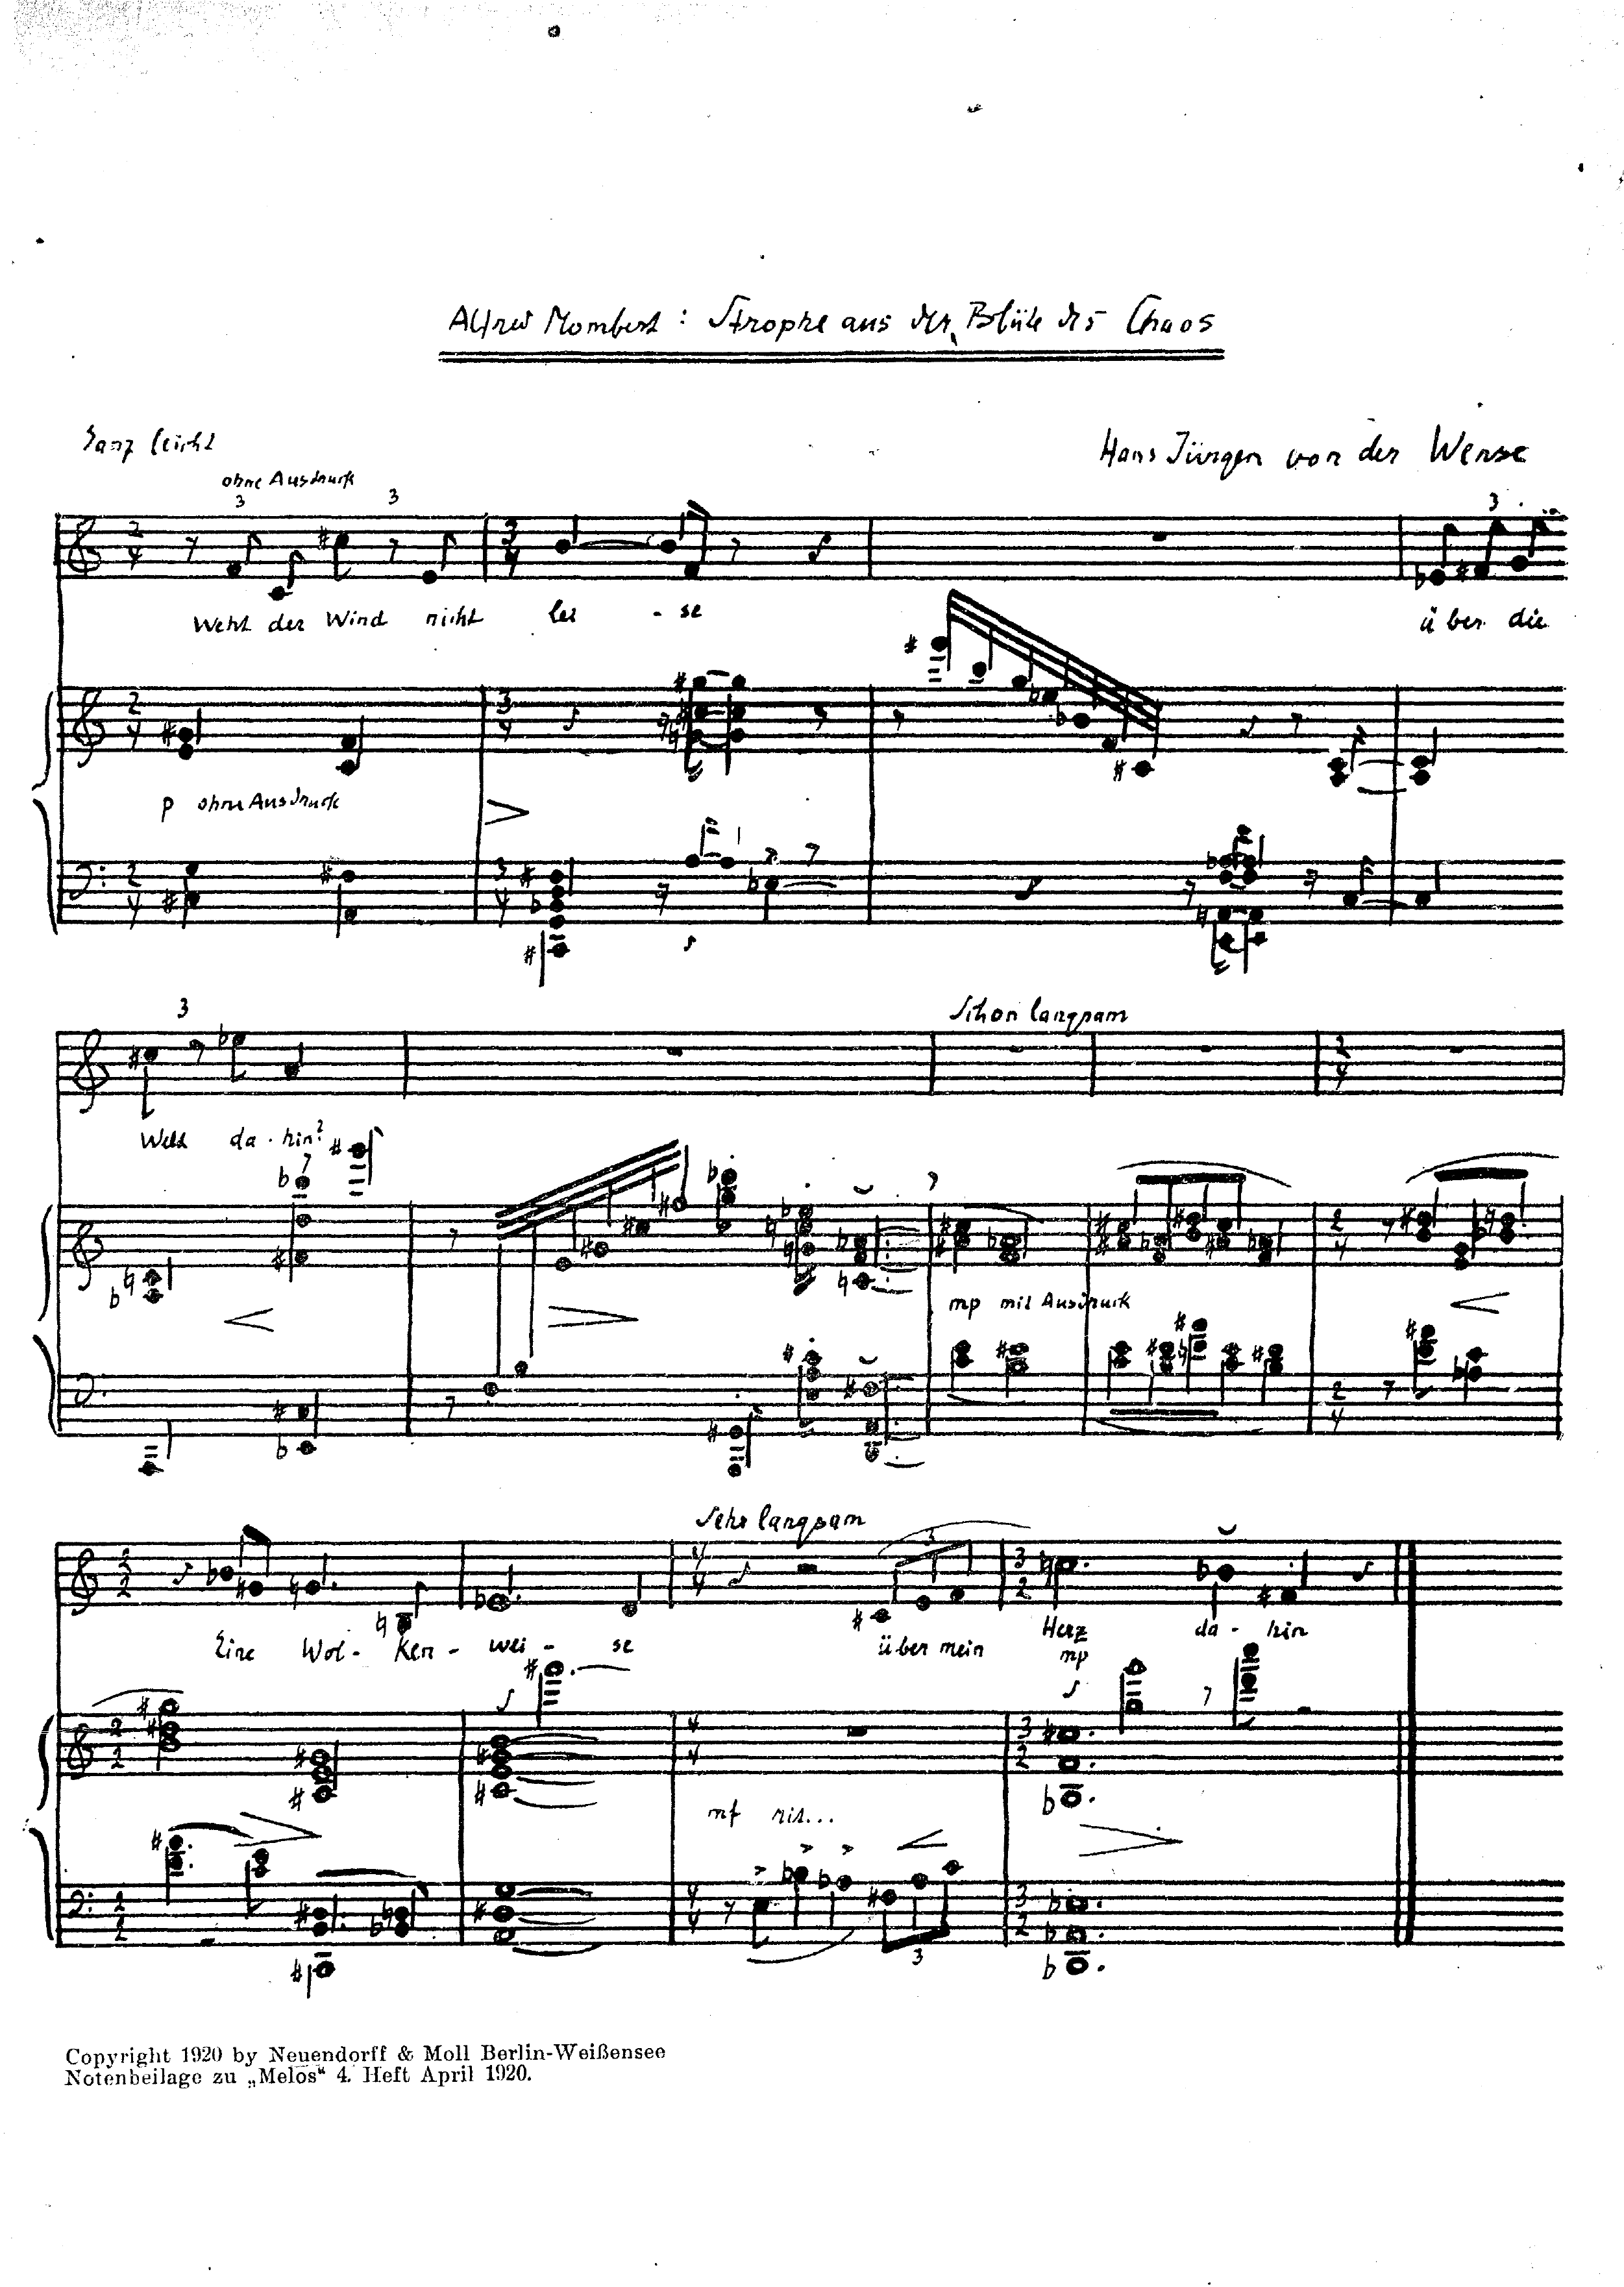 Alfred Mombert: Strophe aus der Blüte des Chaos
Ganz leicht
Hans Jürgen von der Wense
ohne Ausdruck
3 3 3
2 4 3 4
Weht der Wind nicht lei - se über die
2 4 3 4
p ohne Ausdruck
2 4 3 4
Schon langsam
3
2 4
Welt da - hin?
2 4
mp mit Ausdruck
2 4
Sehr langsam
2 2 4 4 3 3 2
Eine Wol - ken - wei - se über mein Herz da - hin
mp
2 2 4 4 3 2
mf rit...
2 2 4 4 3 3 2
Copyright 1920 by Neuendorff & Moll Berlin-Weißensee
Notenbeilage zu „Melos“ 4. Heft April 1920.